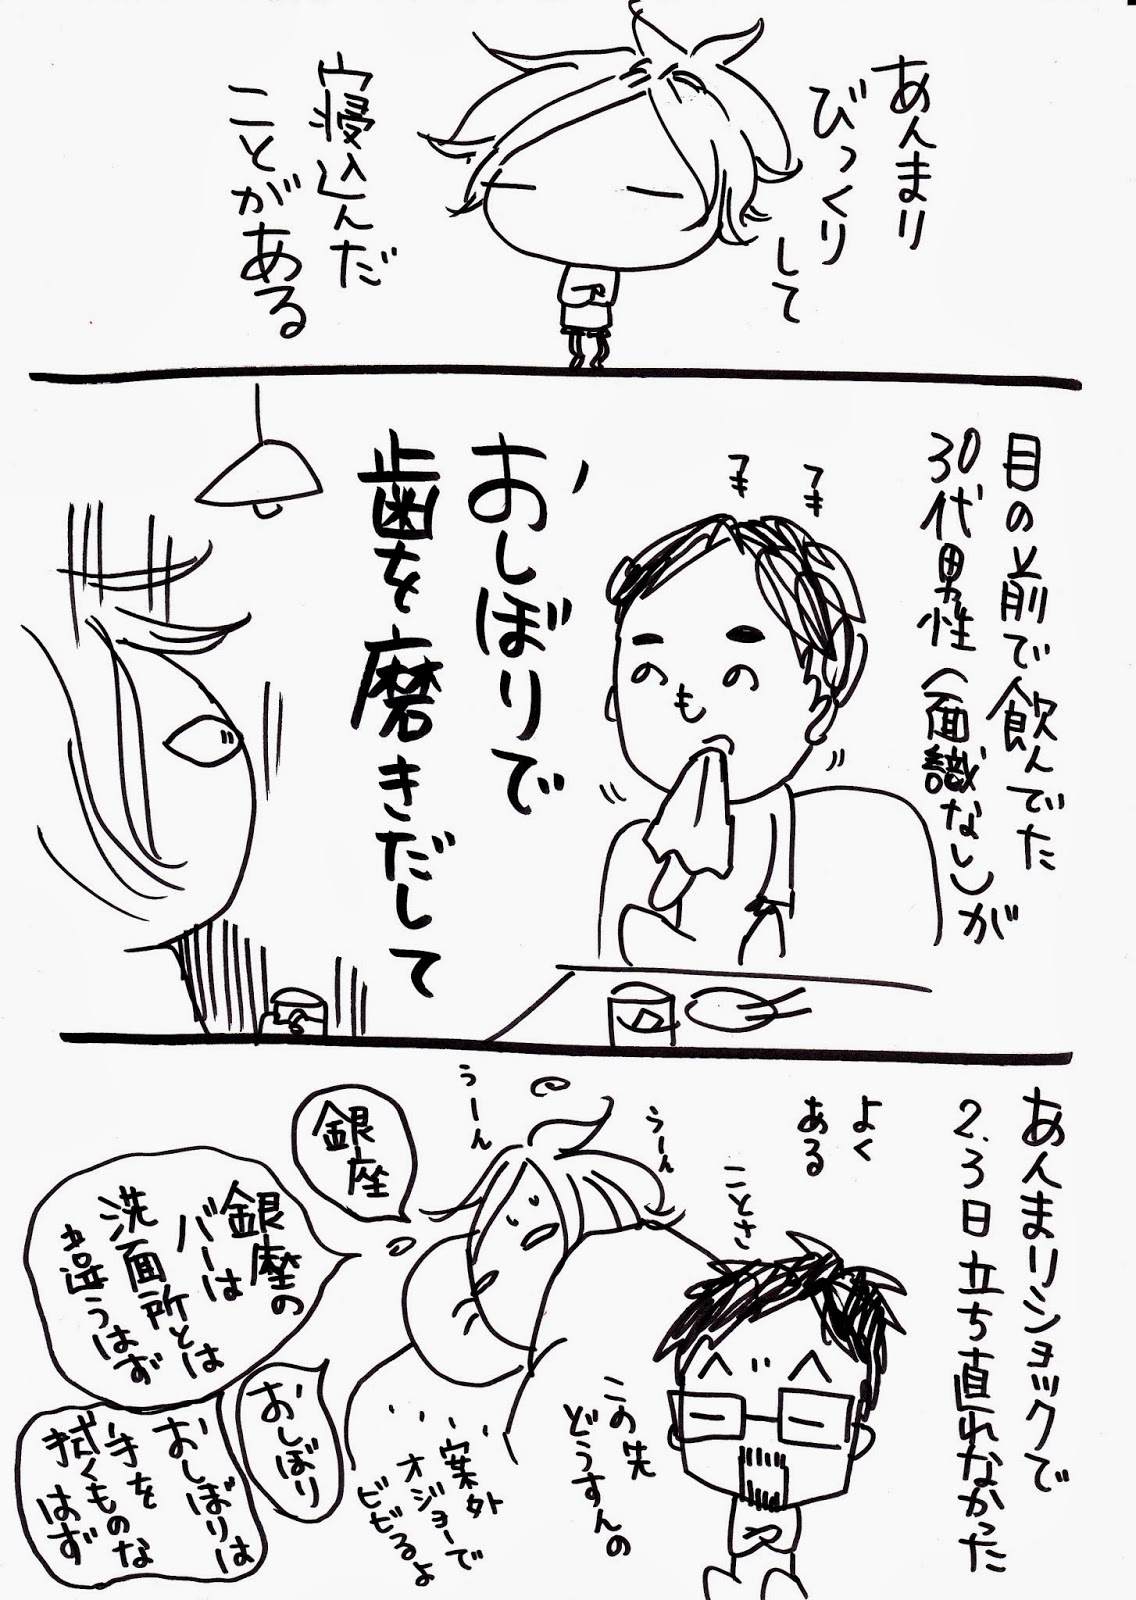 あんまり
びっくり
して
寝込んだ
ことがある
目の前で飲んでた
30代男性(面識なし)が
キ
キ
おしぼりで
歯を磨きだして
あんまりショックで
2.3日立ち直れなかった
よく
ある
ことさ
うーん
うーん
銀座
銀座の
バーは
洗面所とは
違うはず
おしぼり
おしぼりは
手を
拭くものな
はず
この先
どうすんの
案外
オジョーで
ビビるよ